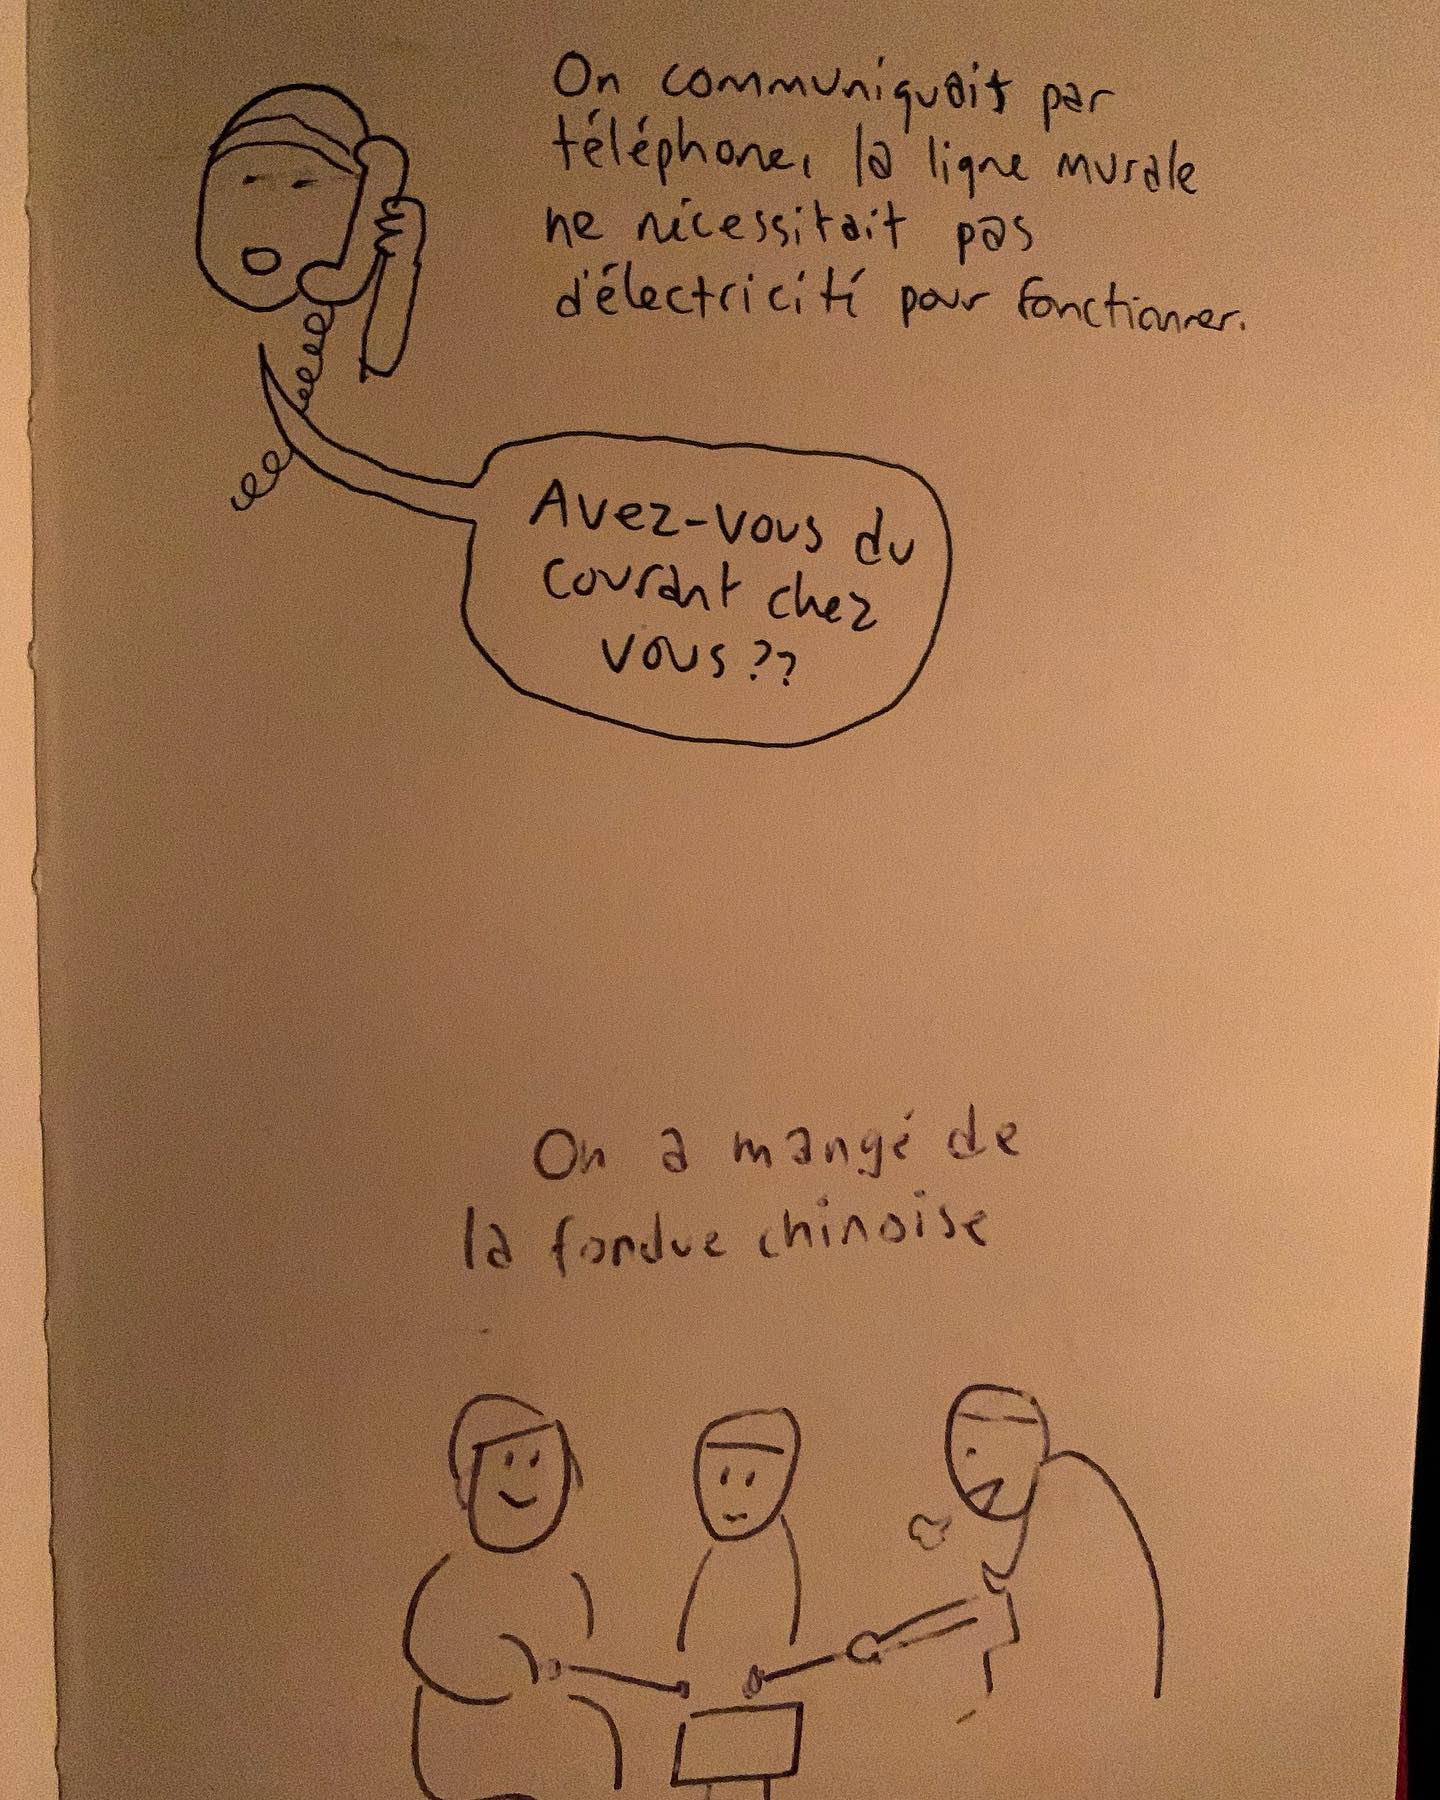 On communiquait par
téléphone, la ligne murale
ne nécessitait pas
d'électricité pour fonctionner.
Avez-vous du
courant chez
vous??
On a mangé de
la fondue chinoise